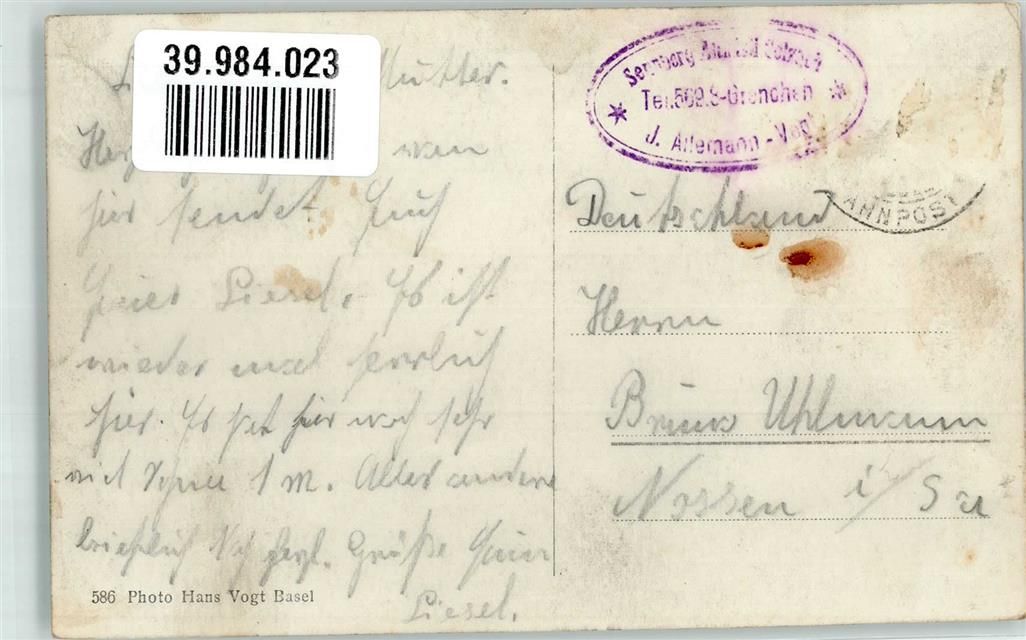 39.984.023
Mutter.
von
hier sendet Euch
Eure Liesel. Es ist
wieder mal herrlich
hier. Es hat hier noch sehr
viel Schnee 1 m. Alles andere
brieflich Noch herzl. Grüße Eure
Liesel.
586 Photo Hans Vogt Basel
Tel. 569.8-Grenchen
J. Allemann - Vogt
AHNPOST
Deutschland
Herrn
Bruno Uhlmann
Nossen i/Sa